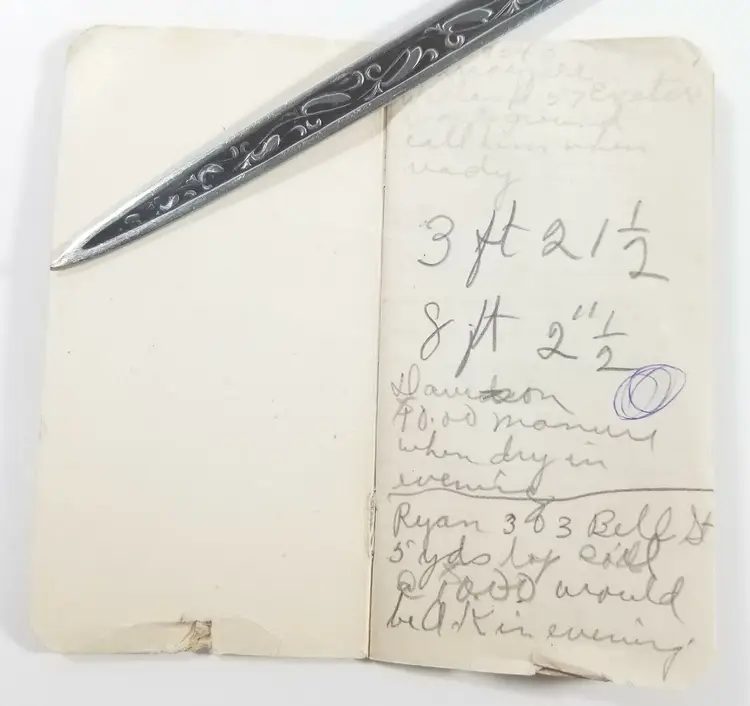 57 Exeter
call him when
ready
3 ft 2 1 1/2
8 ft 2" 1/2
Davidson
40.00 manure
when dry in
evening
Ryan 303 Bell St
5 yds top soil
@ 10.00 would
be O.K in evening